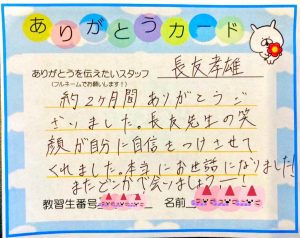 ありがとうカード
ありがとうを伝えたいスタッフ
(フルネームでお願いします!)
長友孝雄
約2ヶ月間ありがとうご
ざいました。長友先生の笑
顔が自分に自信をつけさせて
くれました。本当にお世話になりました!
またどこかで会いましょうー!
教習生番号
名前